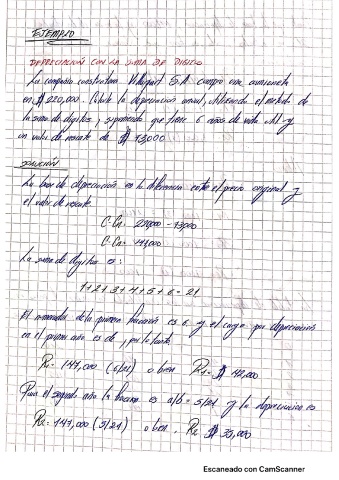 EJEMPLO
DEPRECIACION CON LA SUMA DE DIGITOS
La compañia constructora S.A. compro una camioneta
en $ 220,000. Calcule la depreciacion anual, utilizando el metodo de
la suma de digitos, suponiendo que tiene 6 años de vida util y
un valor de rescate de $ 73,000
SOLUCION
La base de depreciacion es la diferencia entre el precio original y
el valor de rescate
C-Cn= 220000 - 73000
C-Cn= 147,000
La suma de digitos es:
1+2+3+4+5+6=21
El numerador de la primera fraccion es 6 y el cargo por depreciacion
en el primer año es de, por lo tanto,
R1= 147,000 (6/21) o bien R1= $ 42,000
Para el segundo año la fraccion es a/b = 5/21 y la depreciacion es
R2= 147,000 (5/21) o bien, R2 $ 35,000
Escaneado con CamScanner